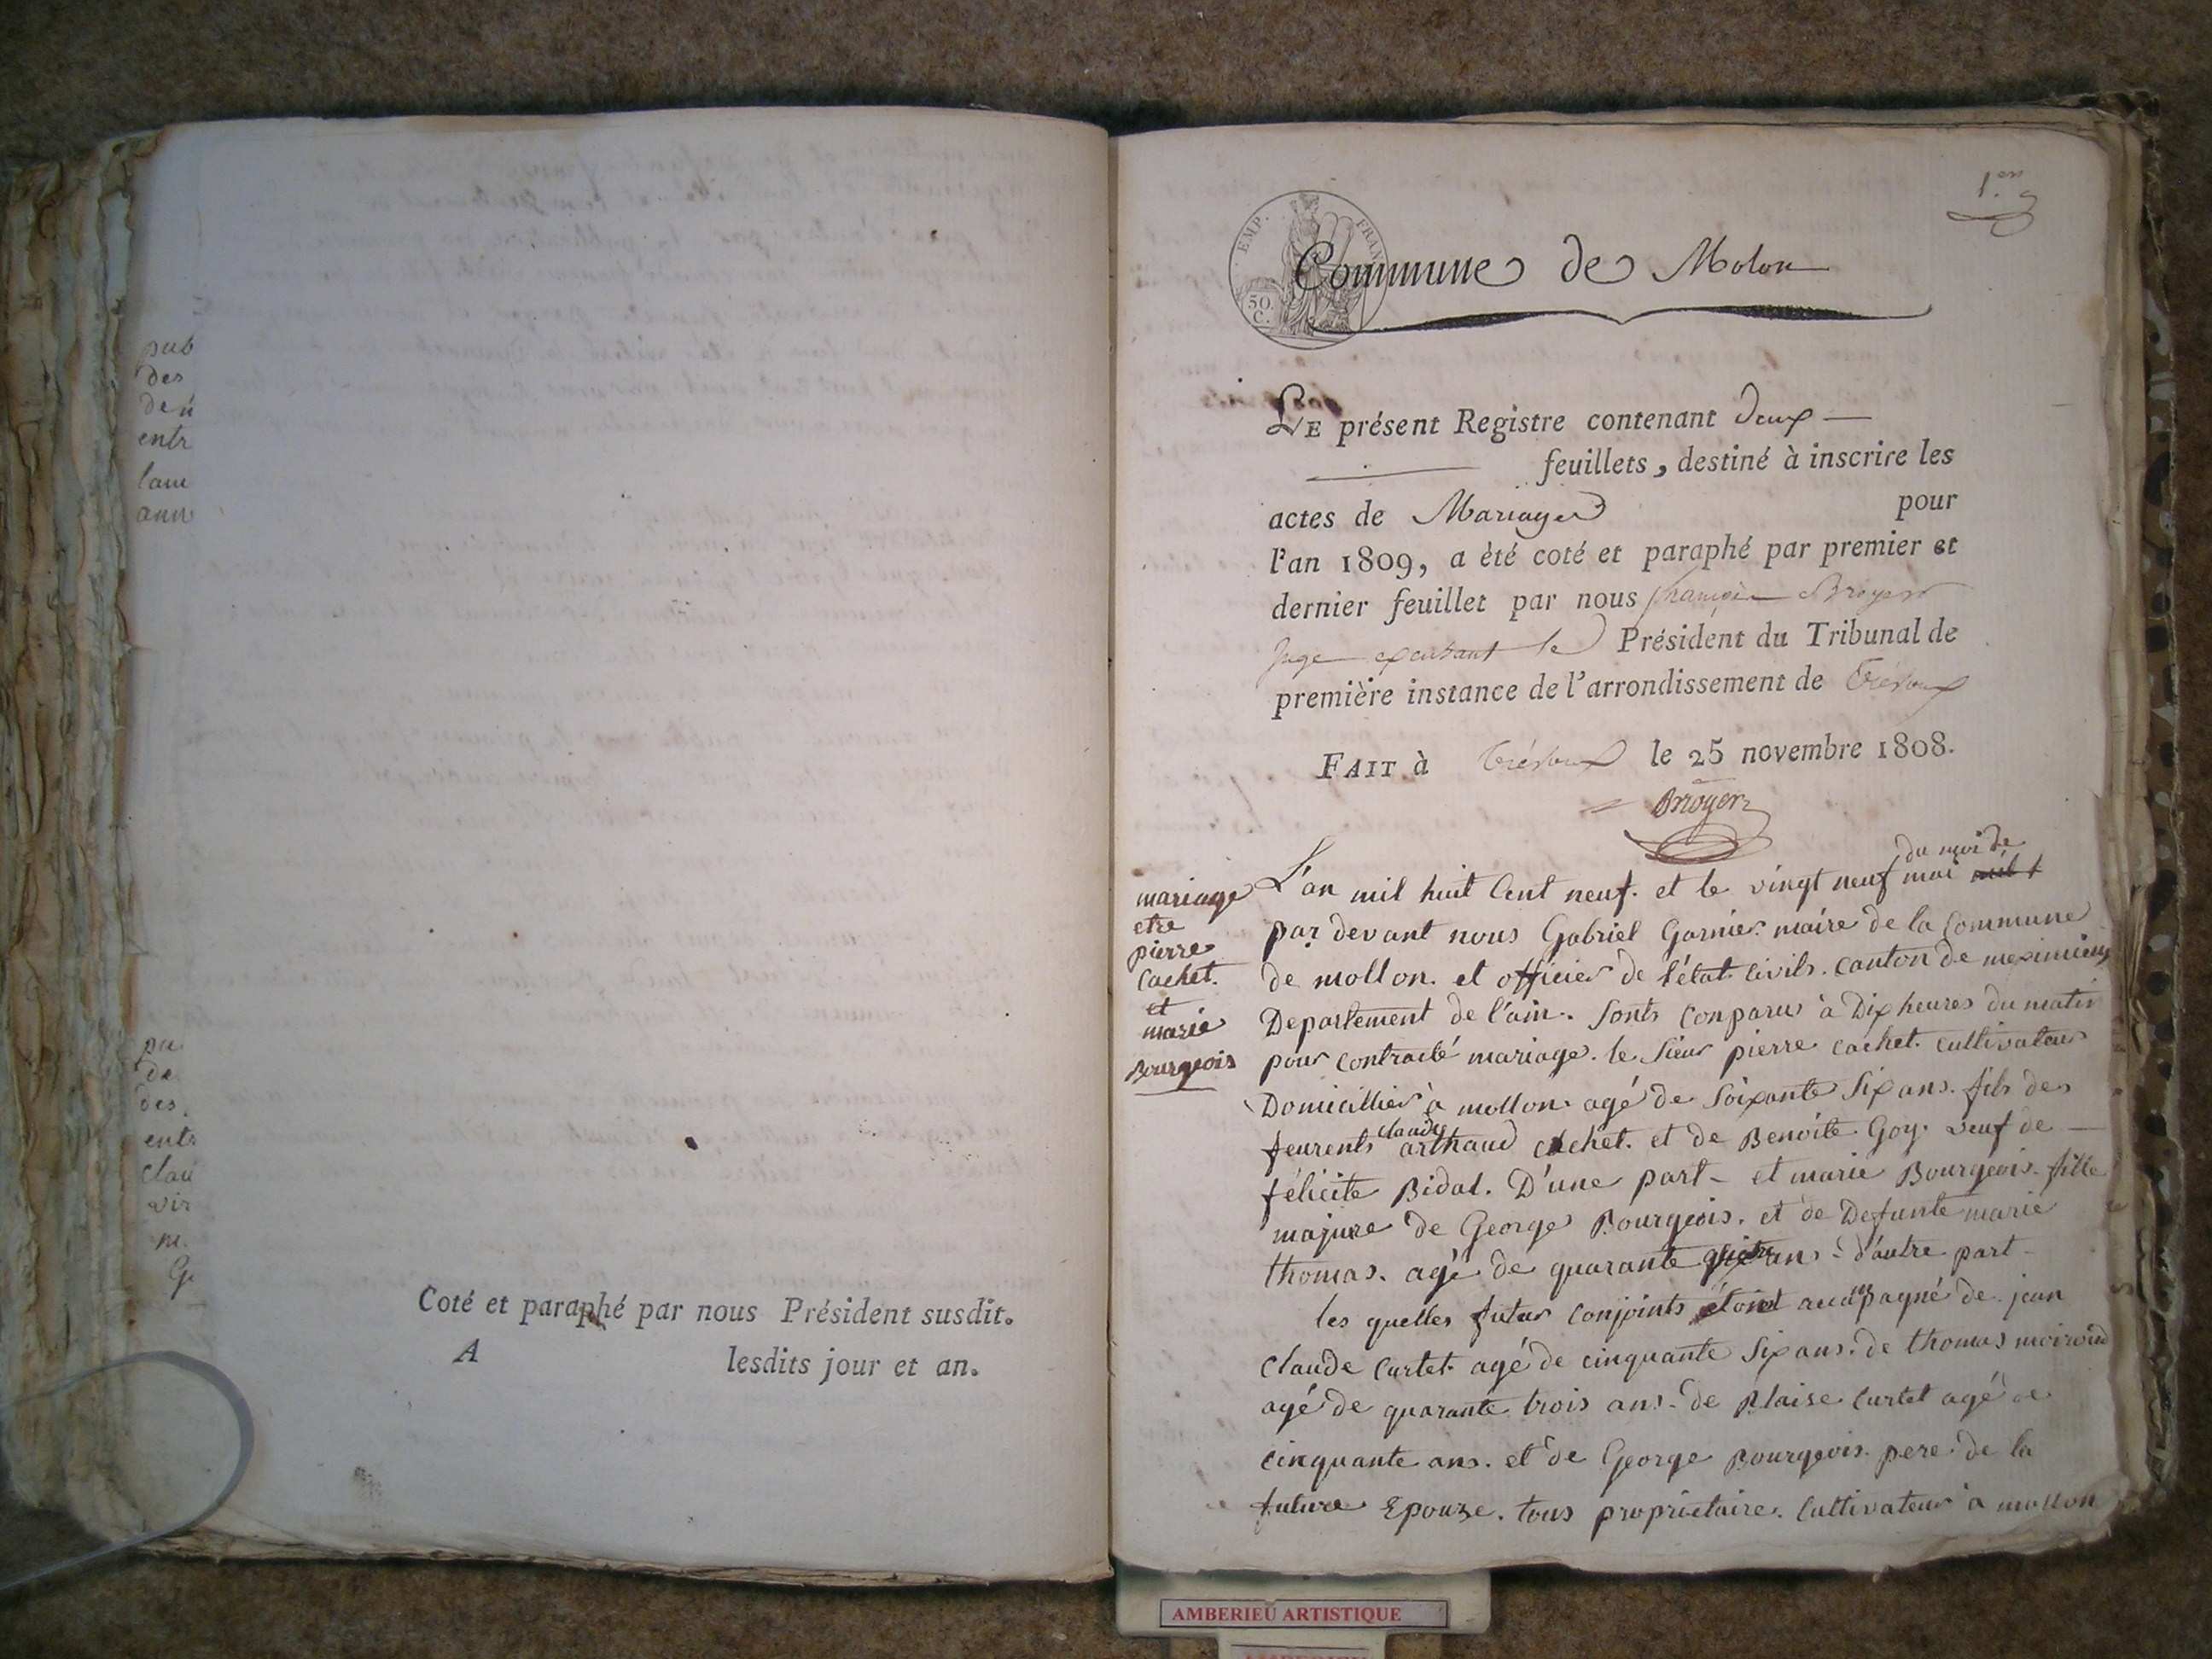 pub
des
entr
ann
entr
clau
vir
Coté et paraphé par nous Président susdit.
A lesdits jour et an.
1.er
EMP. FRAN
50 C.
Commune de Molon
LE présent Registre contenant deux
feuillets, destiné à inscrire les
actes de Mariages pour
l'an 1809, a èté coté et paraphé par premier et
dernier feuillet par nous françois Broyer
Juge exerçant le Président du Tribunal de
première instance de l'arrondissement de Trévoux
FAIT à Trévoux le 25 novembre 1808.
Broyer
mariage
etre
pierre
Cachet.
et
marie
Bourgeois
du moi de
L'an mil huit Cent neuf. et le vingt neuf mai
par devant nous Gabriel Garnier maire de la Commune
de mollon. et officier de l'état civils. canton de meximieux
Departement de l'ain. Sonts Conparus à Dix heures du matin
pour contracté mariage. le Sieur pierre cachet. cultivateur
Domicillier à mollon agé de Soixante Six ans. fils des
claude
feurents arthaud cachet. et de Benoite Goy. veuf de
félicite Bidal. D'une part - et marie Bourgeois. fille
majure de George Bourgeois. et de Defunte marie
thomas. agé de quarante ans - d'autre part -
les quelles futur Conjoints étoint accopagné de jean
Claude Curtet agé de cinquante Six ans. de thomas moiroud
agé de quarante trois ans - de Blaise Curtet agé de
cinquante ans. et de George Bourgeois pere de la
future Epouze. tous proprietaire. Cultivateur a mollon
AMBERIEU ARTISTIQUE
AMBERIEU